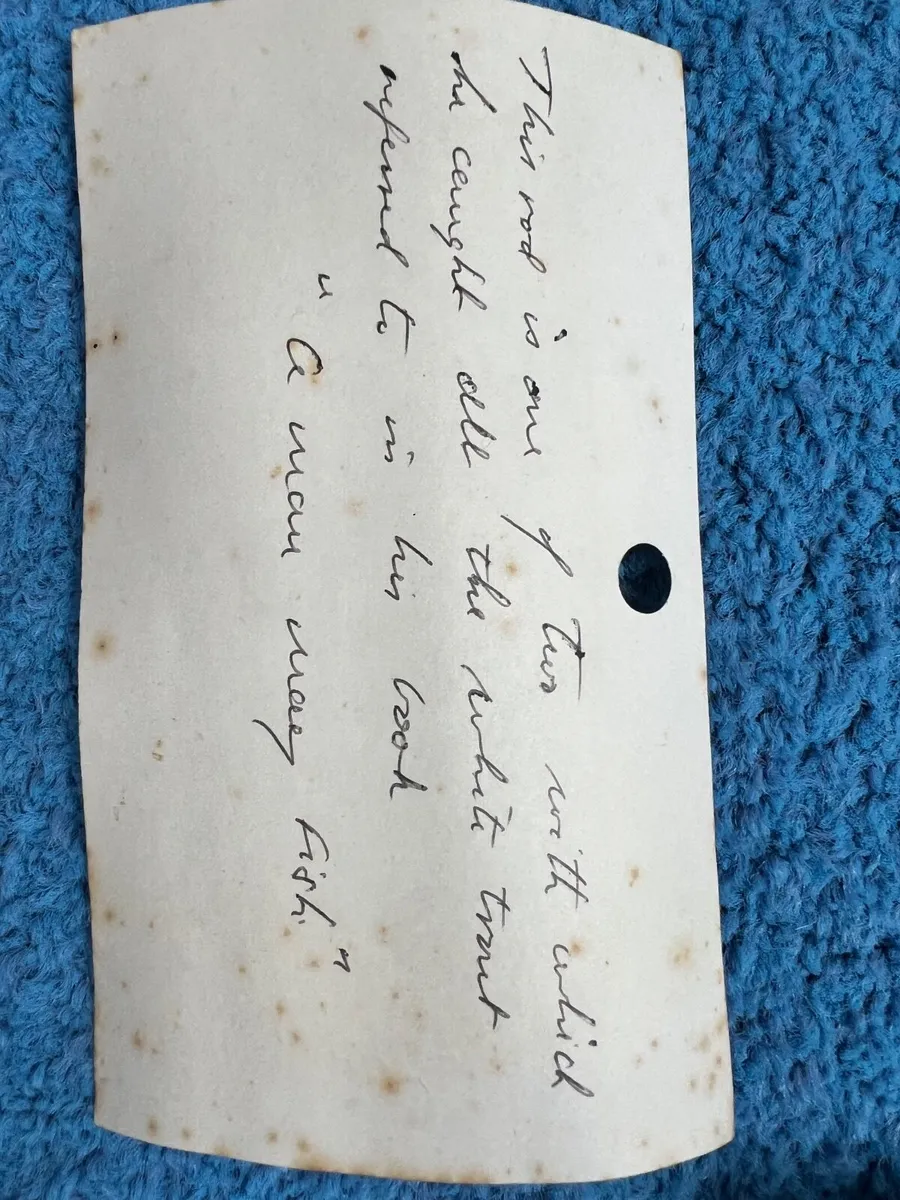 This rod is one of two with which
he caught all the white trout
referred to in his book
"A man may fish"